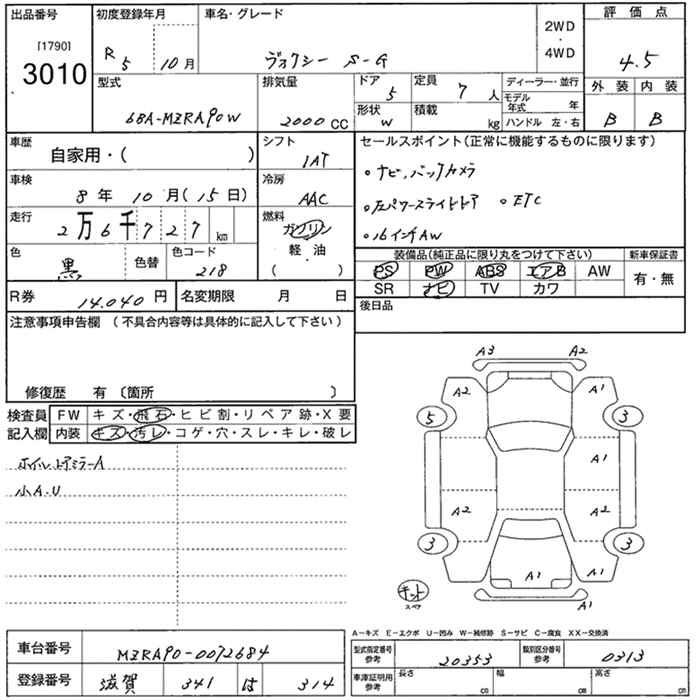 出品番号 初度登録年月 車名・グレード 2WD・4WD 評価点
[1790]
3010 R5 10月 ヴォクシー S-G 4.5
型式 排気量 ドア 5 定員 7人 ディーラー・並行 外装 内装
6BA-MZRA90W 2000CC 形状 W 積載 kg モデル年式 年 B B
ハンドル 左・右
車歴 自家用・( ) シフト 1AT セールスポイント(正常に機能するものに限ります)
車検 8年10月(15日) 冷房 AAC ・ナビ,バックカメラ
走行 2万6千727km 燃料 ガソリン ・左パワースライドドア ・ETC
軽・油 ・16インチAW
( )
色 黒 色替 色コード 218 装備品(純正品に限り丸をつけて下さい) 新車保証書
PS PW ABS エアB AW 有・無
SR ナビ TV カワ
R券 14,040円 名変期限 月 日 後日品
注意事項申告欄 (不具合内容等は具体的に記入して下さい)
修復歴 有 〔箇所 〕
検査員 FW キズ・飛石・ヒビ割・リペア跡・X要
記入欄 内装 キズ・汚レ・コゲ・穴・スレ・キレ・破レ
小A.U
A3 A2
A2 A1
5 3
A1
A2 A2
3 3
A1 A1
キット
スペア
A-キズ E-エクボ U-凹み W-補修跡 S-サビ C-腐食 XX-交換済
車台番号 MZRA90-0072684 型式指定番号 参考 20353 類別区分番号 参考 0313
登録番号 滋賀 341 は 314 車庫証明用 参考 長さ cm 幅 cm 高さ cm